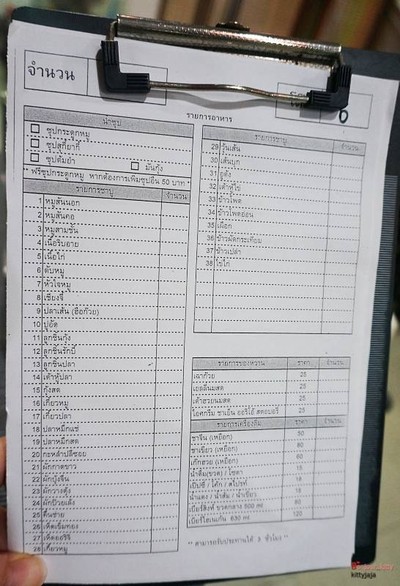 จำนวน
โต๊ะ
รายการอาหาร
น้ำซุป
ซุปกระดูกหมู
ซุปสุกี้ยากี้
ซุปต้มยำ
มันกุ้ง
** ฟรีซุปกระดูกหมู หากต้องการเพิ่มซุปอื่น 50 บาท **
รายการชาบู จำนวน
1 หมูสันนอก
2 หมูสันคอ
3 หมูสามชั้น
4 เนื้อริบอาย
5 เนื้อโก้
6 ตับหมู
7 หัวใจหมู
8 เซี่ยงจี๊
9 ปลาเส้น (ฮือก้วย)
10 ปูอัด
11 ลูกชิ้นกุ้ง
12 ลูกชิ้นรักบี้
13 ลูกชิ้นปลา
14 เต้าหู้ปลา
15 กุ้งสด
16 เกี๊ยวหมู
17 เกี๊ยวปลา
18 ปลาหมึกแช่
19 ปลาหมึกสด
20 กะหล่ำปลีซอย
21 ผักกาดขาว
22 ผักบุ้งจีน
23 ผักกวางตุ้ง
24 ผักปวยเล้ง
25 คื่นช่าย
26 เห็ดเข็มทอง
27 เห็ดออรินจิ
28 เกี๊ยวหมู
รายการชาบู จำนวน
29 วุ้นเส้น
30 เส้นบุก
31 อุด้ง
32 เต้าหู้ไข่
33 ข้าวโพด
34 ข้าวโพดอ่อน
35 เผือก
36 ข้าวผัดกระเทียม
37 ข้าวเปล่า
38 ไข่ไก่
รายการของหวาน ราคา จำนวน
เฉาก๊วย 25
เยลลี่นมสด 25
เต้าฮวยนมสด 25
ไอศกรีม ชาเย็น โอริโอ้ สตอเบอรี่ 25
รายการเครื่องดื่ม ราคา จำนวน
ชาจีน (เหยือก) 50
ชาเขียว (เหยือก) 80
เก๊กฮวย (เหยือก) 60
น้ำดื่ม(ขวด) / โซดา 15
เป๊ปซี่ / โค้ก / สไปรท์ 18
น้ำแดง / น้ำส้ม / น้ำเขียว 18
เบียร์สิงห์ ขวดกลาง 500 ml
เบียร์ไฮเนเก้น 630 ml 120
** สามารถรับประทานได้ 2 ชั่วโมง **
kittyjeja